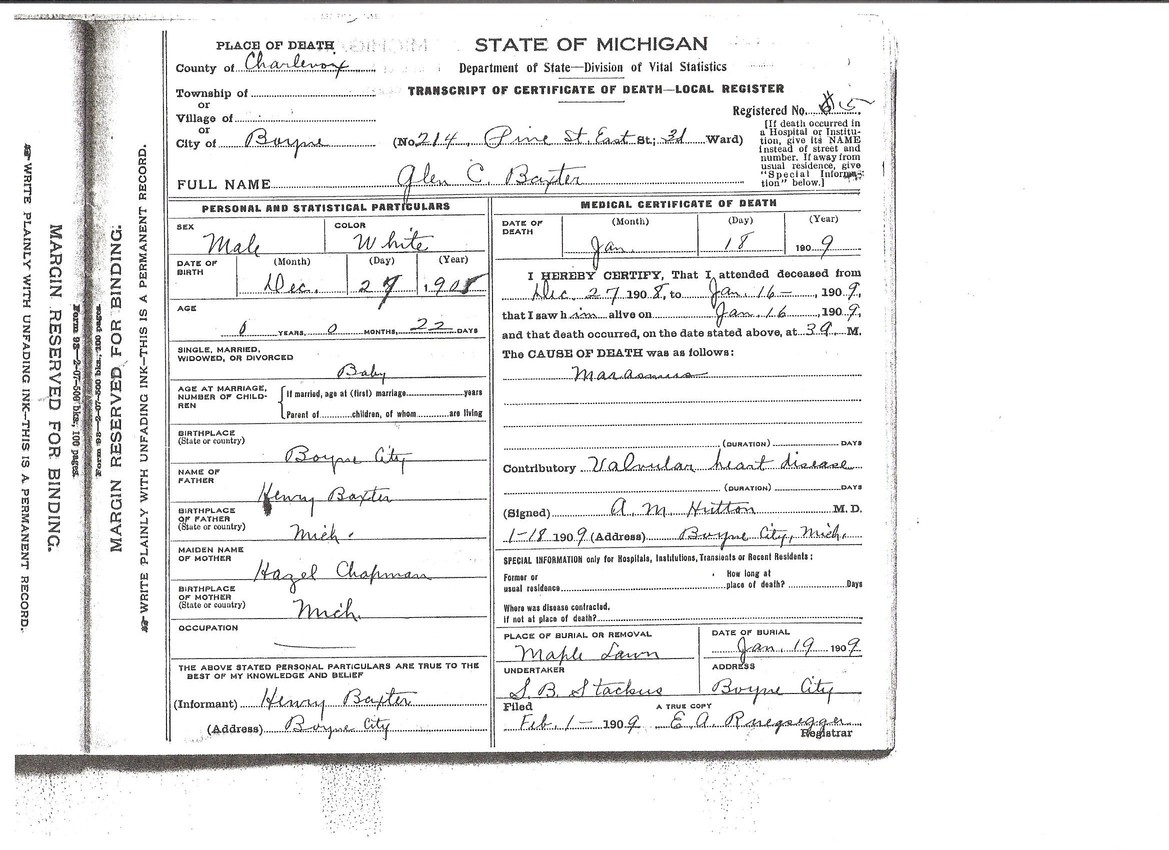 PLACE OF DEATH
County of Charlevoix
Township of
or
Village of
or
City of Boyne
STATE OF MICHIGAN
Department of State—Division of Vital Statistics
TRANSCRIPT OF CERTIFICATE OF DEATH—LOCAL REGISTER
Registered No. 5
(No. 214, Pine St. East St; 3d Ward)
[If death occurred in
a Hospital or Institu-
tion, give its NAME
instead of street and
number. If away from
usual residence, give
"Special Informa-
tion" below.]
FULL NAME Glen C. Baxter
PERSONAL AND STATISTICAL PARTICULARS
SEX
Male
COLOR
White
DATE OF
BIRTH
(Month) (Day) (Year)
Dec. 27, 1908
AGE
0 YEARS, 0 MONTHS, 22 DAYS
SINGLE, MARRIED,
WIDOWED, OR DIVORCED
Baby
AGE AT MARRIAGE,
NUMBER OF CHILD-
REN
If married, age at (first) marriage years
Parent of children, of whom are living
BIRTHPLACE
(State or country)
Boyne City
NAME OF
FATHER
Henry Baxter
BIRTHPLACE
OF FATHER
(State or country)
Mich.
MAIDEN NAME
OF MOTHER
Hazel Chapman
BIRTHPLACE
OF MOTHER
(State or country)
Mich.
OCCUPATION
THE ABOVE STATED PERSONAL PARTICULARS ARE TRUE TO THE
BEST OF MY KNOWLEDGE AND BELIEF
(Informant) Henry Baxter
(Address) Boyne City
MEDICAL CERTIFICATE OF DEATH
DATE OF
DEATH
(Month) (Day) (Year)
Jan. 18 1909
I HEREBY CERTIFY, That I attended deceased from
Dec. 27 1908, to Jan. 16— 1909,
that I saw him alive on Jan. 16, 1909,
and that death occurred, on the date stated above, at M.
The CAUSE OF DEATH was as follows:
Marasmus
(DURATION) DAYS
Contributory Valvular heart disease
(DURATION) DAYS
(Signed) A. M. Hutton M. D.
1-18 1909 (Address) Boyne City, Mich.
SPECIAL INFORMATION only for Hospitals, Institutions, Transients or Recent Residents:
Former or
usual residence
How long at
place of death? Days
Where was disease contracted,
If not at place of death?
PLACE OF BURIAL OR REMOVAL
Maple Lawn
DATE OF BURIAL
Jan. 19 1909
UNDERTAKER
S. B. Stackus
ADDRESS
Boyne City
Filed
Feb. 1— 1909
A TRUE COPY
E A Ruegsegger
Registrar
WRITE PLAINLY WITH UNFADING INK—THIS IS A PERMANENT RECORD.
MARGIN RESERVED FOR BINDING.
Form 98—2-07-500 bks, 100 pages.
MARGIN RESERVED FOR BINDING.
WRITE PLAINLY WITH UNFADING INK—THIS IS A PERMANENT RECORD.